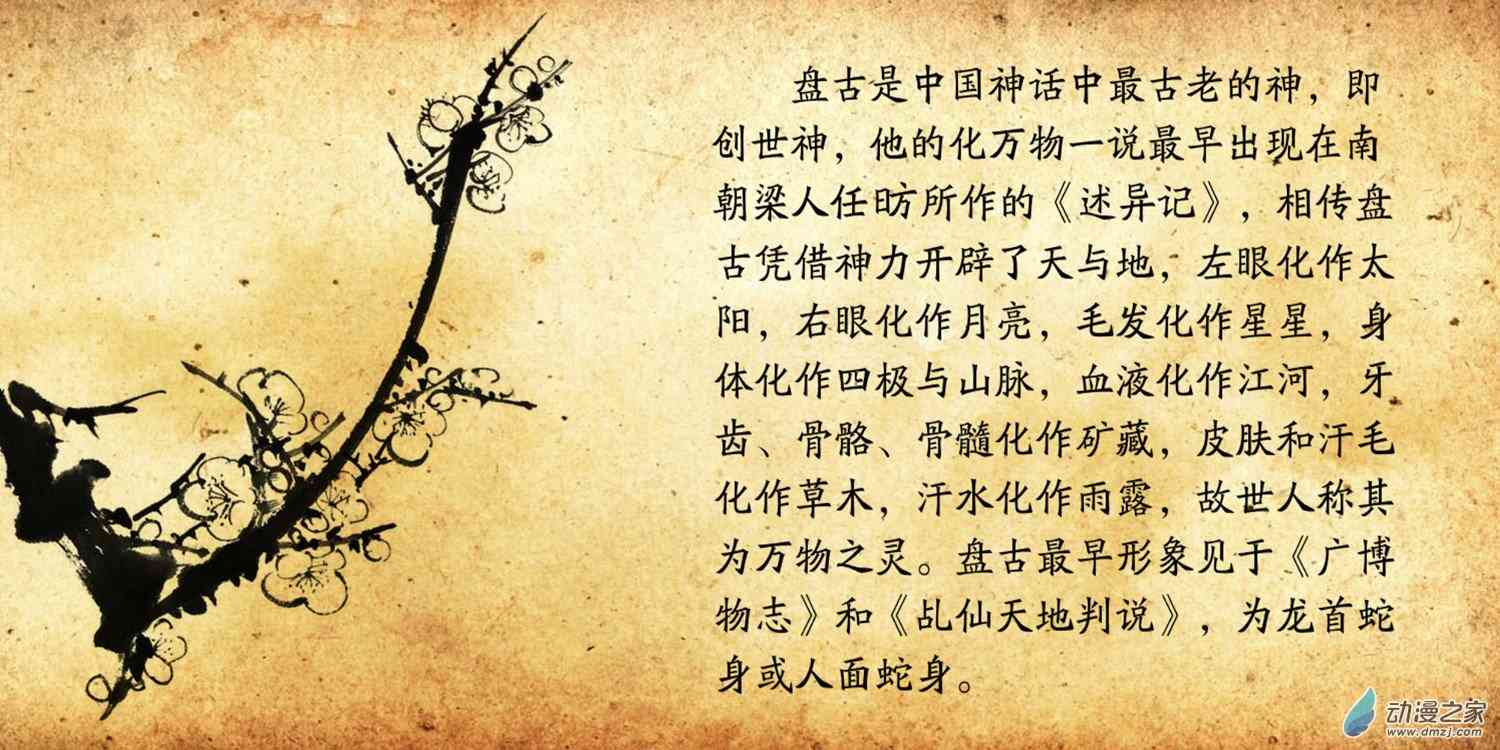 盘古是中国神话中最古老的神，即
创世神，他的化万物一说最早出现在南
朝梁人任昉所作的《述异记》，相传盘
古凭借神力开辟了天与地，左眼化作太
阳，右眼化作月亮，毛发化作星星，身
体化作四极与山脉，血液化作江河，牙
齿、骨骼、骨髓化作矿藏，皮肤和汗毛
化作草木，汗水化作雨露，故世人称其
为万物之灵。盘古最早形象见于《广博
物志》和《乩仙天地判说》，为龙首蛇
身或人面蛇身。
动漫之家
www.dmzj.com